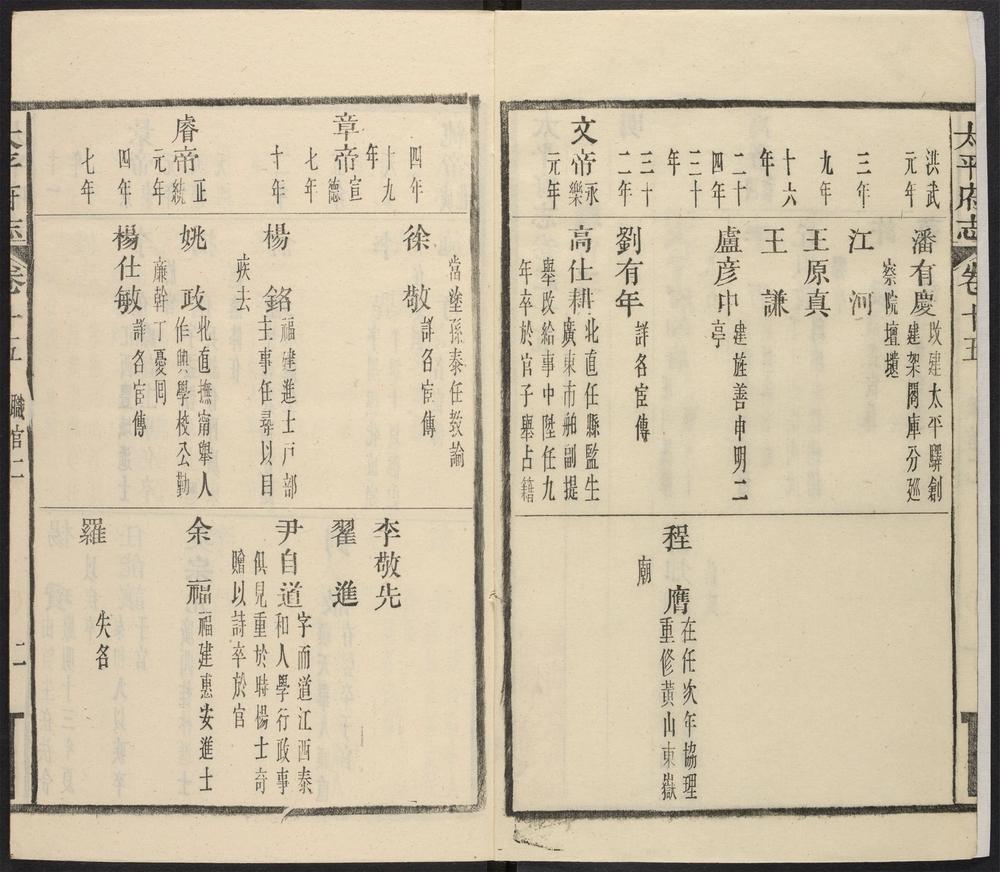 太平府志 卷十五
洪武
元年
三年
九年
十六
年
二十
四年
三十
年
三十
二年
文帝
永樂
元年
潘有慶
改建太平驛創
建架閣庫分廵
察院壇壝
江河
王原真
王謙
盧彦中
建旌善申明二
亭
劉有年
詳名宦傳
高仕耕
北直任縣監生
廣東市舶副提
舉改給事中陞任九
年卒於官子舉占籍
程膺
在任次年協理
重修黄山東嶽
廟
四年
十九
年
章帝
宣德
七年
十年
睿帝
正統
元年
四年
七年
當塗孫泰任教諭
徐敬
詳名宦傳
楊銘
福建進士戸部
主事任尋以目
疾去
姚政
北直撫甯舉人
作興學校公勤
廉幹丁憂囘
楊仕敏
詳名宦傳
李敬先
翟進
尹自道
字而道江西泰
和人學行政事
俱見重於時楊士奇
贈以詩卒於官
余福
福建惠安進士
羅
失名
太平府志 卷十五 職官二
二